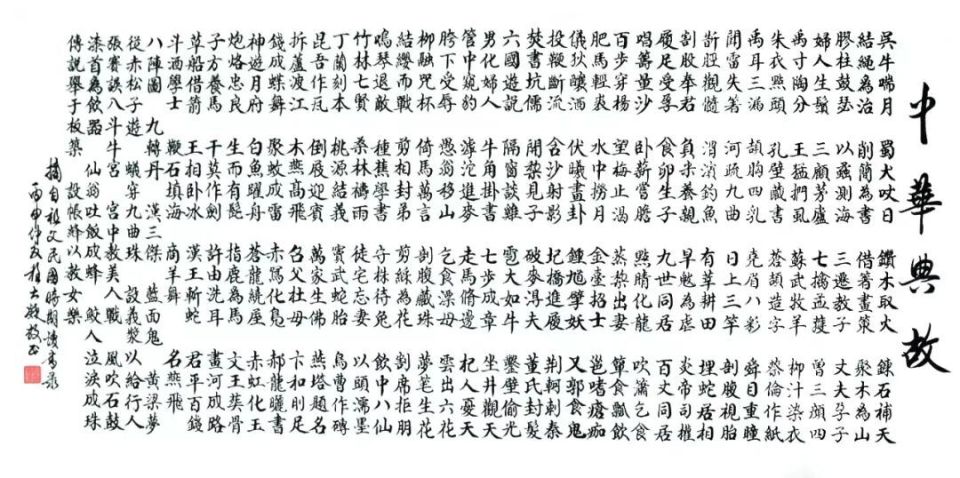 中華典故
吳牛喘月 蜀犬吠日 鑽木取火 錬石補天
結繩為治 削簡為書 借箸畫策 聚米為山
膠柱鼓瑟 以蠡測海 三遷教子 丈夫
婦人生鬚 三顧茅廬 七擒孟獲 曾三顏四
禹寸陶分 王猛捫虱 蘇武牧羊 柳汁染衣
朱衣點頭 孔壁藏書 蒼頡造字 蔡倫作紙
禹耳三漏 胸四乳 堯眉八彩 舜目重瞳
聞雷失箸 河疏九曲 日上三竿 剖腹視胎
斮脛觀髓 渭濱釣魚 有莘耕田 埋蛇居相
割股奉君 負米養親 旱魃為虐 炎帝司
履足受辱 食卵生子 九世同居 百丈同居
唱籌量沙 卧薪嘗膽 點睛化龍 吹簫乞食
百步穿楊 望梅止渴 蒸藜出妻 簞食瓢飲
肥馬輕裘 水中撈月 金臺招士 邕嗜瘡痂
儀狄釀酒 伏羲畫卦 鍾馗擘妖 又郭食鬼
投鞭斷流 含沙射影 圯橋進履 荊軻刺秦
焚書坑儒 開渠見子 破麥得夫 董氏封髮
六國遊說 隔窗談雞 雹大如牛 鑿壁偷光
男化婦人 牛角掛書 七步成章 坐井觀天
管中窺豹 滹沱進麥 走馬脩邊 杞人憂天
胯下受辱 愚翁移山 乞食漂母 雲出六花
柳融咒杯 倚馬萬言 剖腹藏珠 夢筆生花
結纓而戰 剪桐封弟 剪綵為花 割席拒朋
鳴琴退敵 守株待兔 飲中八仙
竹林七賢 桑林禱雨 徙宅忘妻 以頭濡墨
丁蘭刻木 桃源結義 竇武蛇胎 烏曹作磚
昆吾作瓦 倒屐迎賓 萬家生佛 燕塔題名
拆蘆渡江 木燕高飛 召父杜母 卞和刖足
錢成蝶舞 聚蚊成雷 赤舄化鳧 郝龍曬書
神遊月府 白魚躍舟 蒼龍繞屋 赤虹化玉
炮烙忠良 生而有髭 指鹿為馬 文王葬骨
子方養馬 干莫作劍 許由洗耳 畫河成路
草船借箭 王相卧冰 漢王斬蛇 君平百錢
斗酒學士 鞭石填海 商羊舞 名燕飛
八陣圖 九轉丹 漢三傑 藍面鬼 黃粱夢
從赤松子遊 蟻穿九曲珠 設義漿以給行人
張騫誤入斗牛宮 宮中教美人戰 風吹石鼓
漆首為飲器 仙翁吐飯成蜂 鮫人泣淚成珠
傳說舉于板築 設帳絳以教女樂
摘自祖父民國時期讀書錄
丙申仲夏